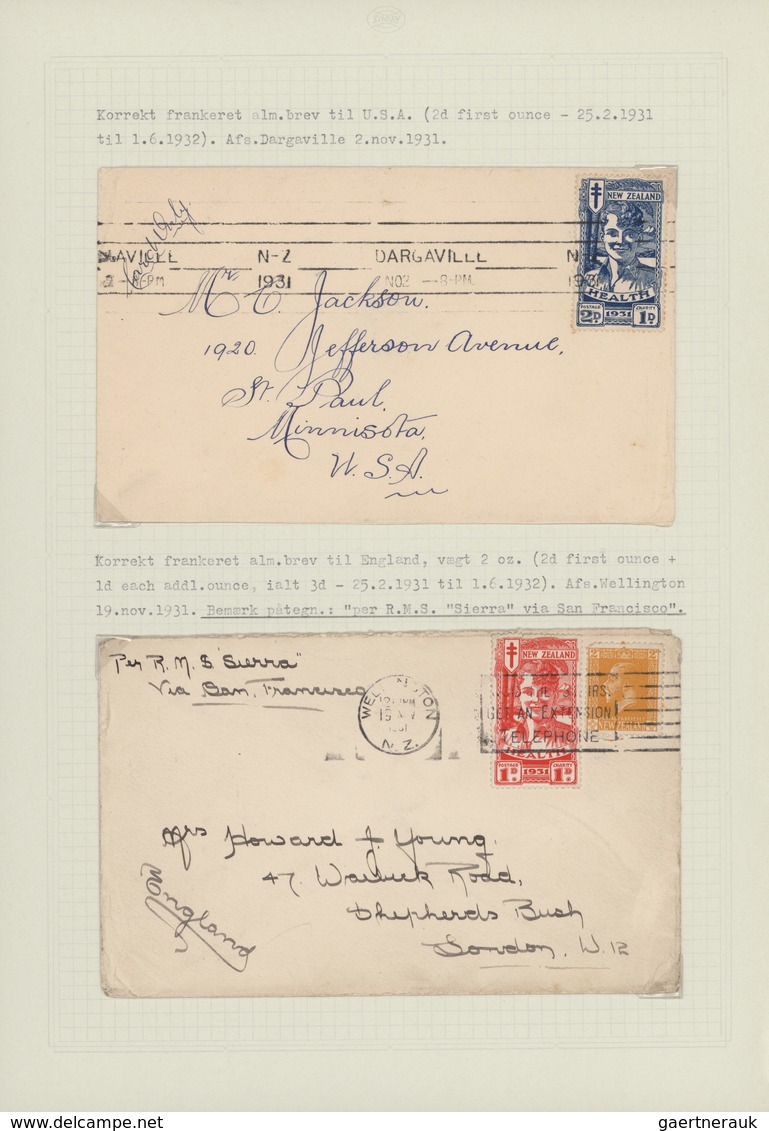 Korrekt frankeret alm.brev til U.S.A. (2d first ounce - 25.2.1931
til 1.6.1932). Afs.Dargaville 2.nov.1931.
NEW ZEALAND
HEALTH
POSTAGE CHARITY
2D 1931 1D
GAVILLE N-Z DARGAVILLE N-Z
-8-PM 1931 NO2 -8-PM 1931
Card Only
Mr C. Jackson.
1920. Jefferson Avenue,
St. Paul,
Minnisota,
U.S.A.
Korrekt frankeret alm.brev til England, vægt 2 oz. (2d first ounce +
1d each addl.ounce, ialt 3d - 25.2.1931 til 1.6.1932). Afs.Wellington
19.nov.1931. Bemærk påtegn.: "per R.M.S. "Sierra" via San Francisco".
Per R.M.S "Sierra"
Via San Francisco
WELLINGTON
19 NOV
1931
N.Z.
GET AN EXTENSION
TELEPHONE
NEW ZEALAND
HEALTH
POSTAGE CHARITY
1D 1931 1D
2 2
NEW ZEALAND
Mrs Howard J. Young.
47. Warwick Road,
Shepherds Bush
London. W.12
England
DELCAMPE.NET
gaertnerauk